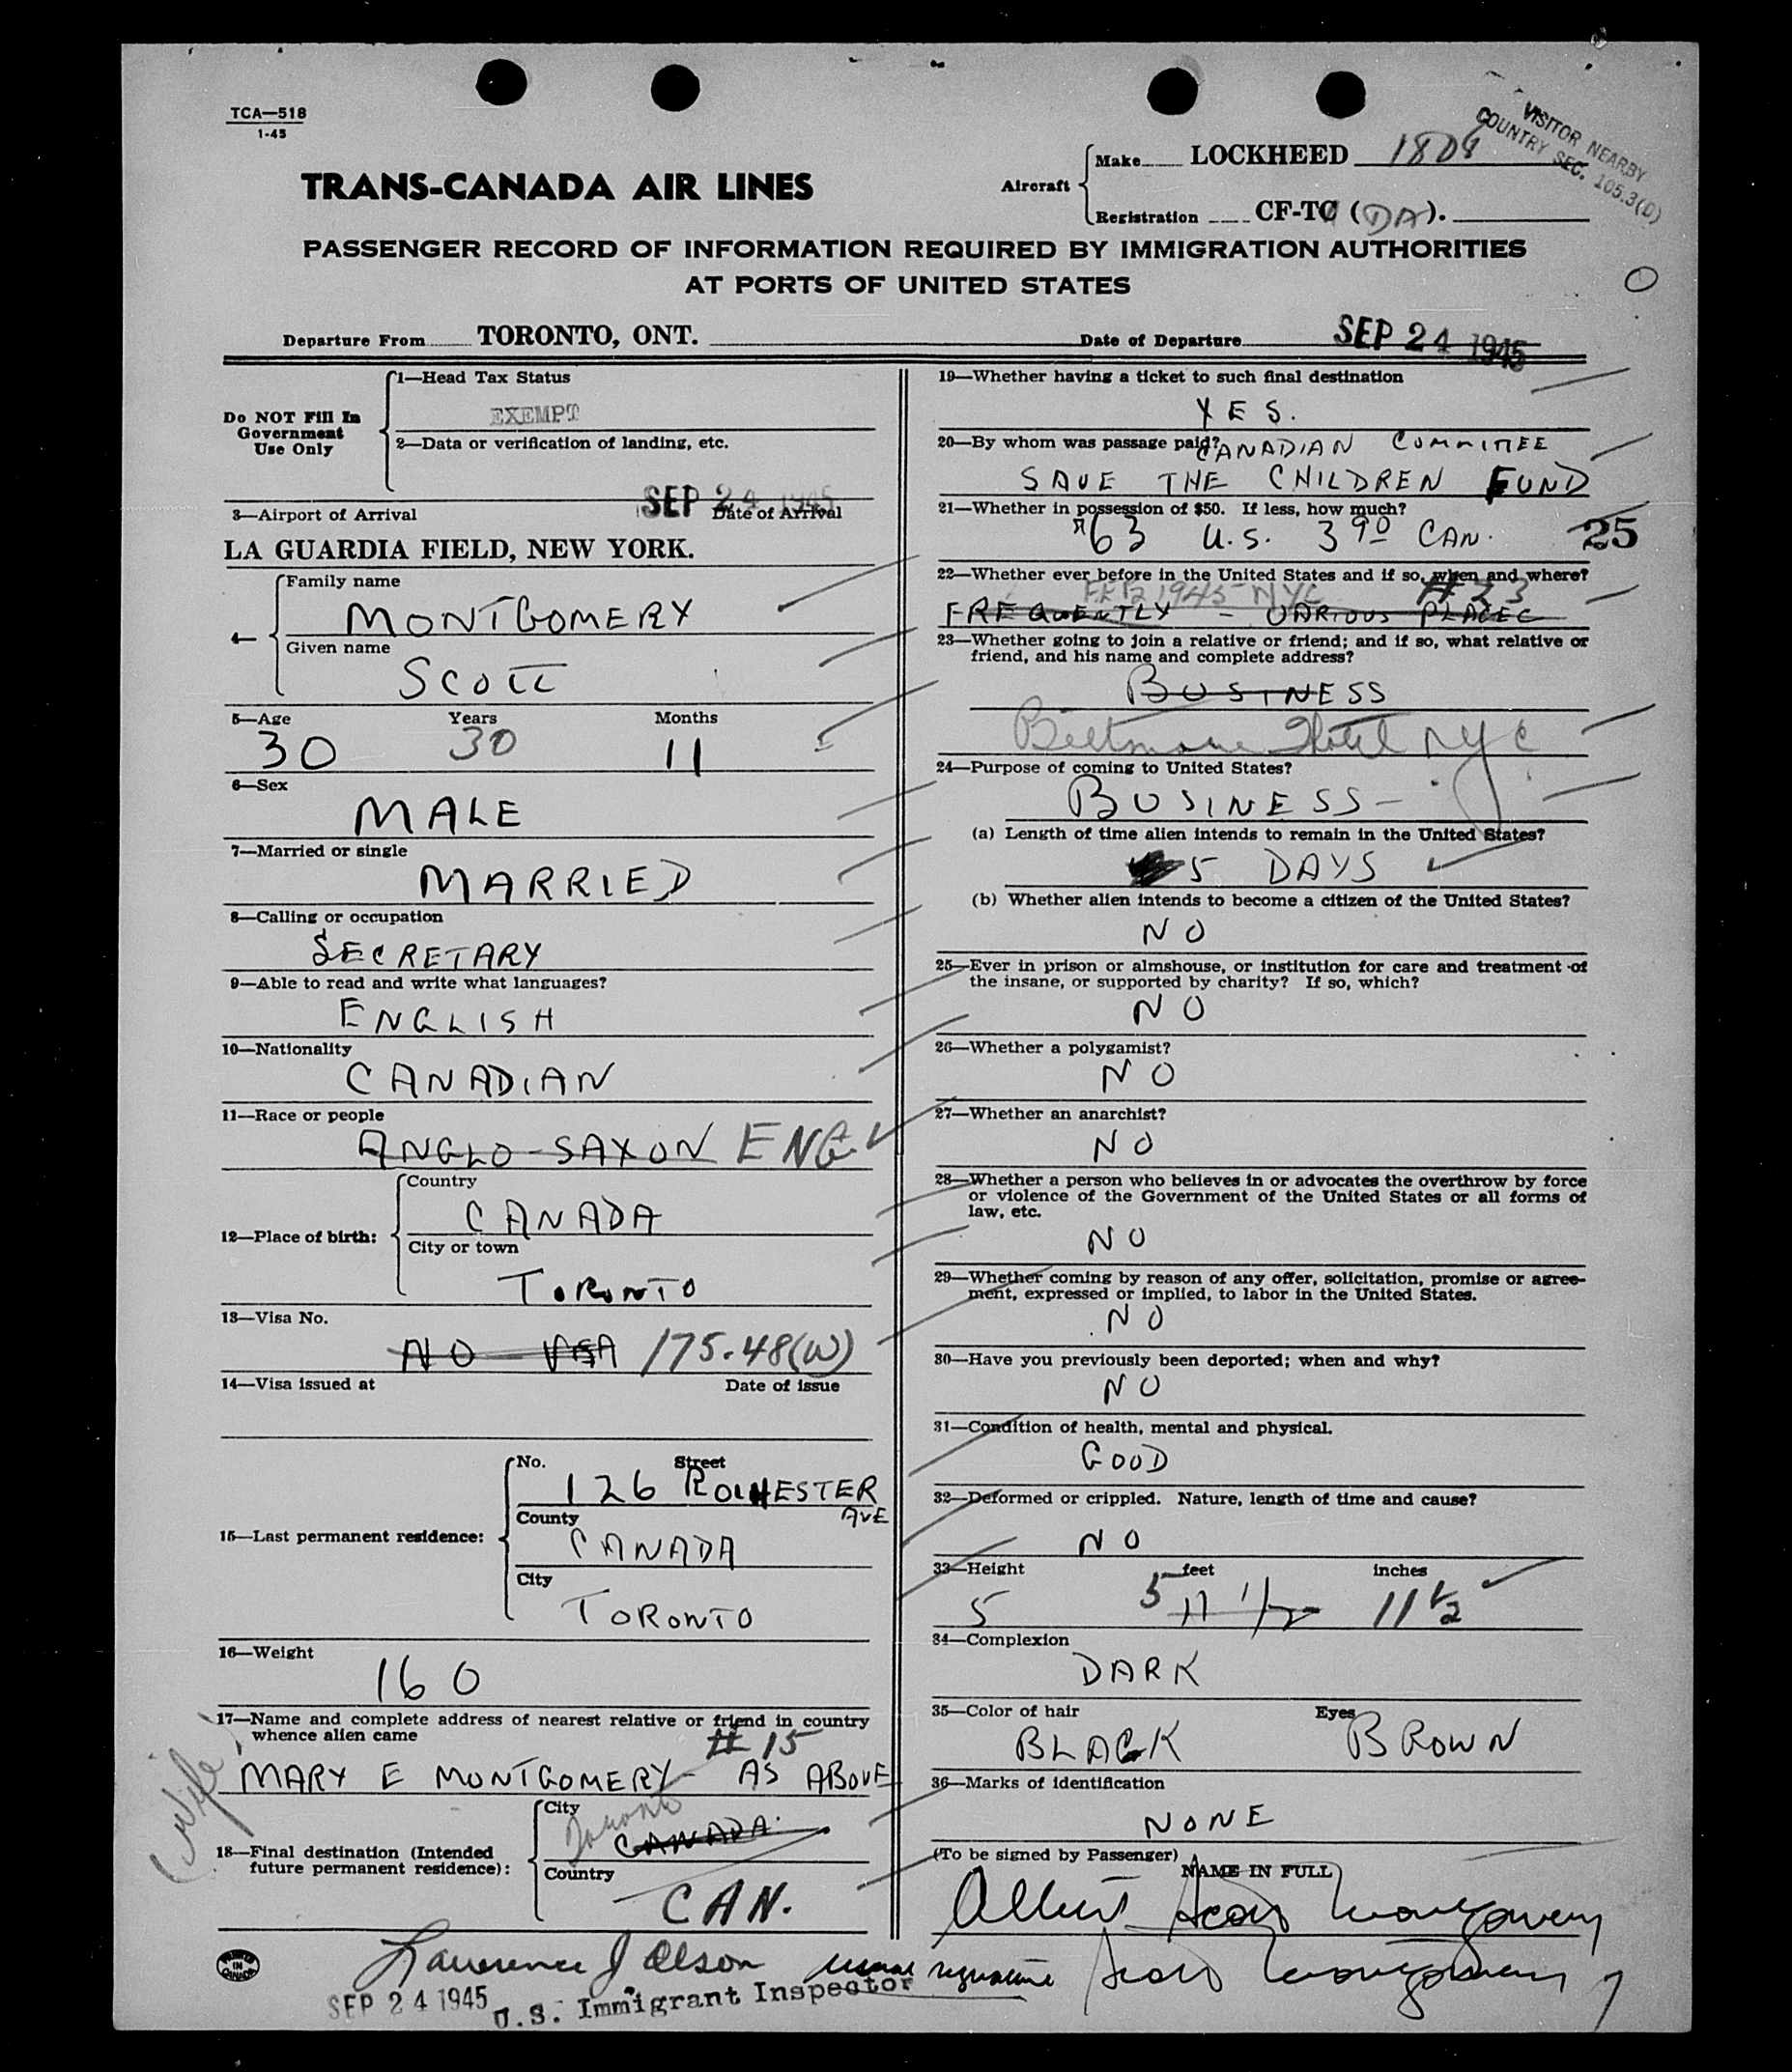 TCA—518
1-45
VISITOR NEARBY
COUNTRY SEC. 105.3(D)
TRANS-CANADA AIR LINES
Aircraft
Make LOCKHEED 1808
Registration CF-TC (DA).
PASSENGER RECORD OF INFORMATION REQUIRED BY IMMIGRATION AUTHORITIES
AT PORTS OF UNITED STATES
Departure From TORONTO, ONT. Date of Departure SEP 24 1945
Do NOT Fill In
Government
Use Only
1—Head Tax Status
EXEMPT
2—Data or verification of landing, etc.
SEP 24 1945
3—Airport of Arrival Date of Arrival
LA GUARDIA FIELD, NEW YORK.
4—
Family name
MONTGOMERY
Given name
SCOTT
5—Age Years Months
30 30 11
6—Sex
MALE
7—Married or single
MARRIED
8—Calling or occupation
SECRETARY
9—Able to read and write what languages?
ENGLISH
10—Nationality
CANADIAN
11—Race or people
ANGLO-SAXON ENG.
12—Place of birth:
Country
CANADA
City or town
TORONTO
13—Visa No.
NO VISA 175.48(W)
14—Visa issued at Date of issue
15—Last permanent residence:
No. Street
126 ROCHESTER
AVE
County
CANADA
City
TORONTO
16—Weight
160
17—Name and complete address of nearest relative or friend in country
whence alien came
# 15
MARY E MONTGOMERY - AS ABOVE
(Wife)
18—Final destination (Intended
future permanent residence):
City
Toronto
CANADA.
Country
CAN.
19—Whether having a ticket to such final destination
YES.
20—By whom was passage paid? CANADIAN COMMITTEE
SAVE THE CHILDREN FUND
21—Whether in possession of $50. If less, how much?
$63 U.S. 3 90 CAN. 25
22—Whether ever before in the United States and if so, when and where?
FEB 1945 NYC # 23
FREQUENTLY - VARIOUS PLACES
23—Whether going to join a relative or friend; and if so, what relative or
friend, and his name and complete address?
BUSINESS
Biltmore Hotel NYC
24—Purpose of coming to United States?
BUSINESS -
(a) Length of time alien intends to remain in the United States?
5 DAYS
(b) Whether alien intends to become a citizen of the United States?
NO
25—Ever in prison or almshouse, or institution for care and treatment of
the insane, or supported by charity? If so, which?
NO
26—Whether a polygamist?
NO
27—Whether an anarchist?
NO
28—Whether a person who believes in or advocates the overthrow by force
or violence of the Government of the United States or all forms of
law, etc.
NO
29—Whether coming by reason of any offer, solicitation, promise or agree-
ment, expressed or implied, to labor in the United States.
NO
30—Have you previously been deported; when and why?
NO
31—Condition of health, mental and physical.
GOOD
32—Deformed or crippled. Nature, length of time and cause?
NO
33—Height feet inches
5 5 11 1/2 11 1/2
34—Complexion
DARK
35—Color of hair Eyes
BLACK BROWN
36—Marks of identification
NONE
(To be signed by Passenger)
NAME IN FULL
Albert Scott Montgomery
Lawrence J Olson usual signature Scott Montgomery
SEP 24 1945 U.S. Immigrant Inspector